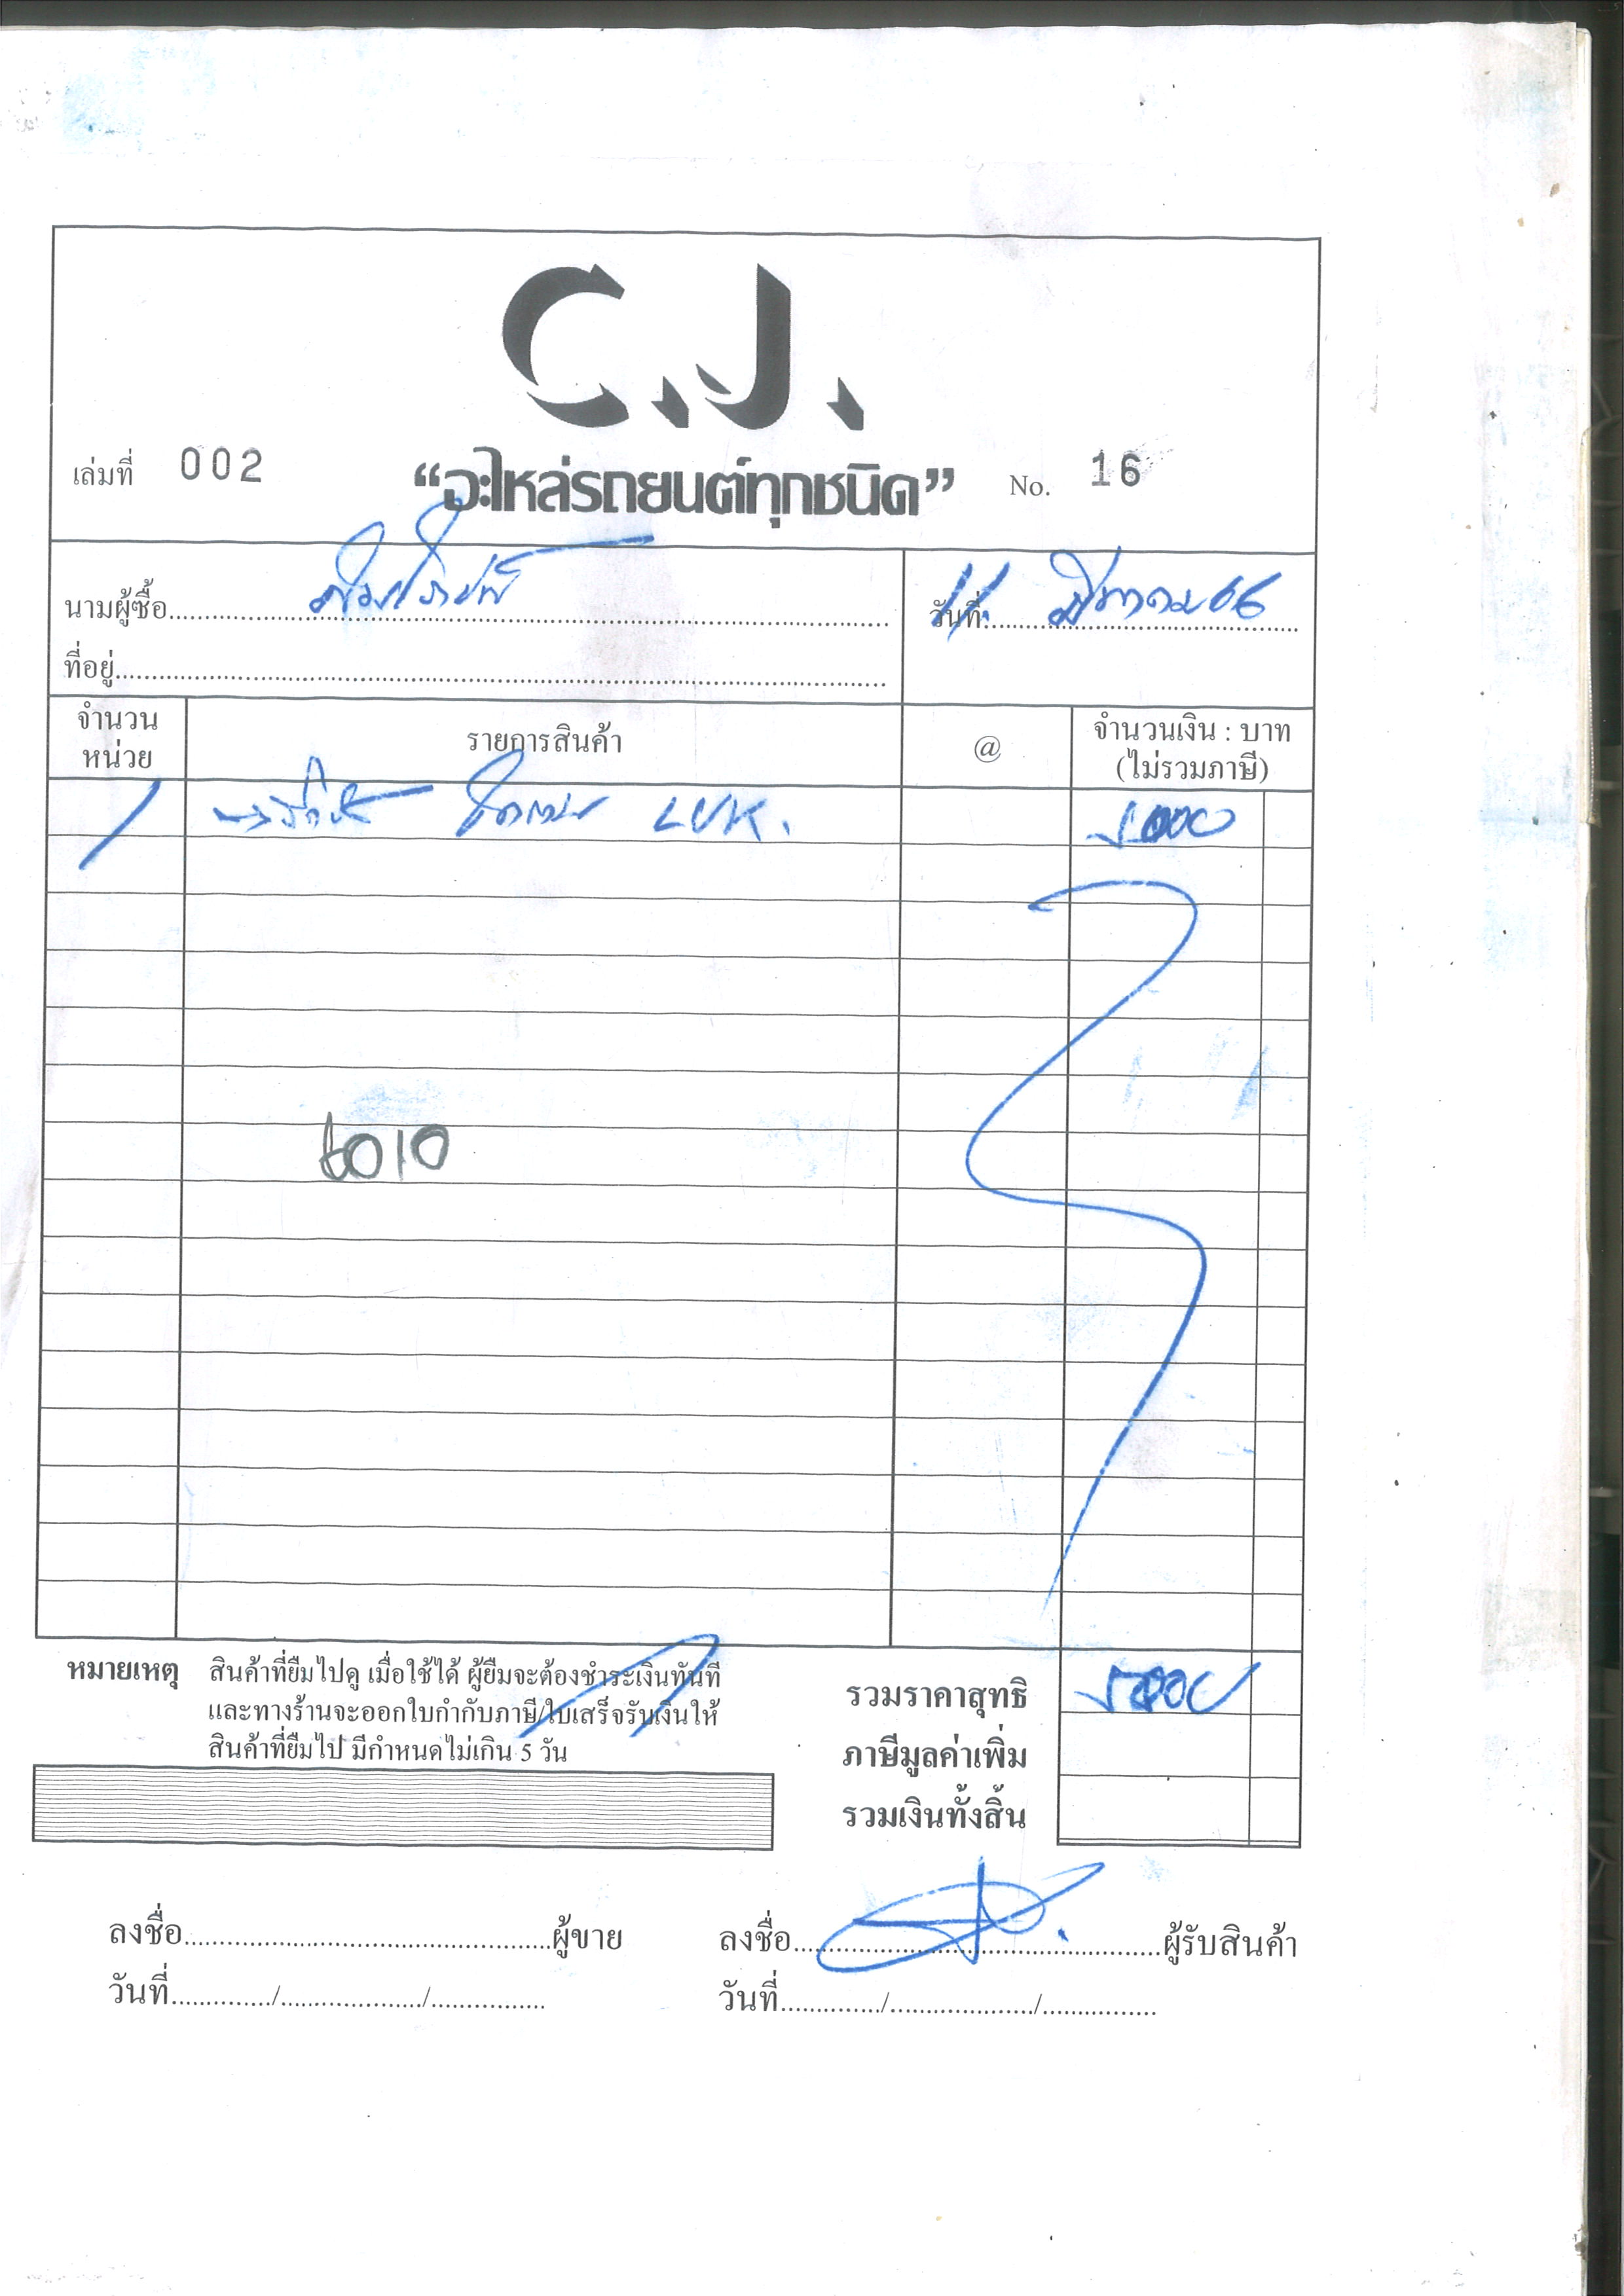 C.J.
เล่มที่ 002 “อะไหล่รถยนต์ทุกชนิด” No. 16
นามผู้ซื้อ
วันที่ 11 มีนาคม 66
ที่อยู่
จำนวน
หน่วย
รายการสินค้า
@
จำนวนเงิน : บาท
(ไม่รวมภาษี)
1 LUK.
6010
หมายเหตุ สินค้าที่ยืมไปดู เมื่อใช้ได้ ผู้ยืมจะต้องชำระเงินทันที
และทางร้านจะออกใบกำกับภาษี/ใบเสร็จรับเงินให้
สินค้าที่ยืมไป มีกำหนดไม่เกิน 5 วัน
รวมราคาสุทธิ
ภาษีมูลค่าเพิ่ม
รวมเงินทั้งสิ้น
ลงชื่อ ผู้ขาย ลงชื่อ ผู้รับสินค้า
วันที่ / / วันที่ / /